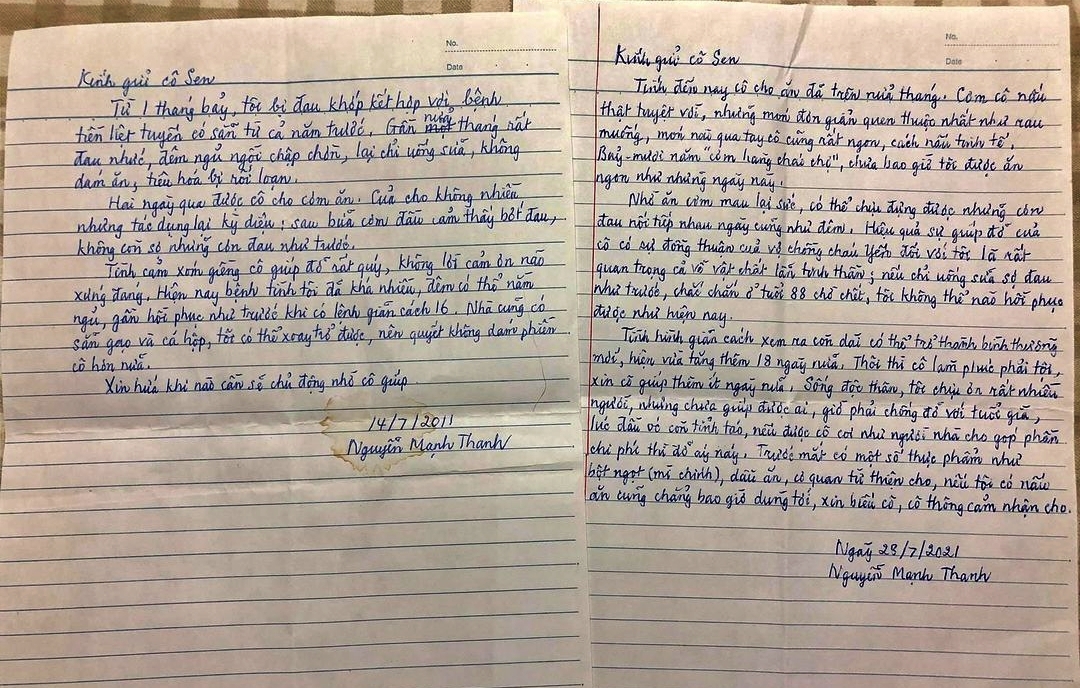 No.
Date
Kính gửi cô Sen
Từ 1 tháng bảy, tôi bị đau khớp kết hợp với bệnh
tiền liệt tuyến có sẵn từ cả năm trước. Gần nửa tháng rất
đau nhức, đêm ngủ ngồi chập chờn, lại chỉ uống sữa, không
dám ăn, tiêu hoá bị rối loạn.
Hai ngày qua được cô cho cơm ăn. Của cho không nhiều
nhưng tác dụng lại kỳ diệu; sau bữa cơm đầu cảm thấy bớt đau,
không còn sợ những cơn đau như trước.
Tình cảm xóm giềng cô giúp đỡ rất quý, không lời cảm ơn nào
xứng đáng. Hiện nay bệnh tình tôi đã khá nhiều, đêm có thể nằm
ngủ, gần hồi phục như trước khi có lệnh giãn cách 16. Nhà cũng có
sẵn gạo và cá hộp, tôi có thể xoay trở được, nên quyết không dám phiền
cô hơn nữa.
Xin hứa khi nào cần sẽ chủ động nhờ cô giúp
14/7/2011
Nguyễn Mạnh Thanh
No.
Date
Kính gửi cô Sen
Tính đến nay cô cho ăn đã trên nửa tháng. Cơm cô nấu
thật tuyệt vời, những món đơn giản quen thuộc nhất như rau
muống, món nào qua tay cô cũng rất ngon, cách nấu tinh tế.
Bảy-mươi năm "cơm hàng cháo chợ", chưa bao giờ tôi được ăn
ngon như những ngày này.
Nhờ ăn cơm mau lại sức, có thể chịu đựng được những cơn
đau nối tiếp nhau ngày cũng như đêm. Hiệu quả sự giúp đỡ của
cô có sự đồng thuận của vợ chồng cháu Yến đối với tôi là rất
quan trọng cả về vật chất lẫn tinh thần; nếu chỉ uống sữa sợ đau
như trước, chắc chắn ở tuổi 88 chờ chết, tôi không thể nào hồi phục
được như hiện nay.
Tình hình giãn cách xem ra còn dài có thể trở thành bình thường
mới, hiện vừa tăng thêm 18 ngày nữa. Thôi thì cô làm phúc phải tội,
xin cô giúp thêm ít ngày nữa. Sống độc thân, tôi chịu ơn rất nhiều
người, nhưng chưa giúp được ai, giờ phải chống đỡ với tuổi già,
lúc đầu óc còn tỉnh táo, nếu được cô coi như người nhà cho góp phần
chi phí thì đỡ áy náy. Trước mắt có một số thực phẩm như
bột ngọt (mì chính), dầu ăn, cơ quan từ thiện cho, nếu tôi có nấu
ăn cũng chẳng bao giờ dùng tới, xin biếu cô, cô thông cảm nhận cho.
Ngày 29/7/2021
Nguyễn Mạnh Thanh